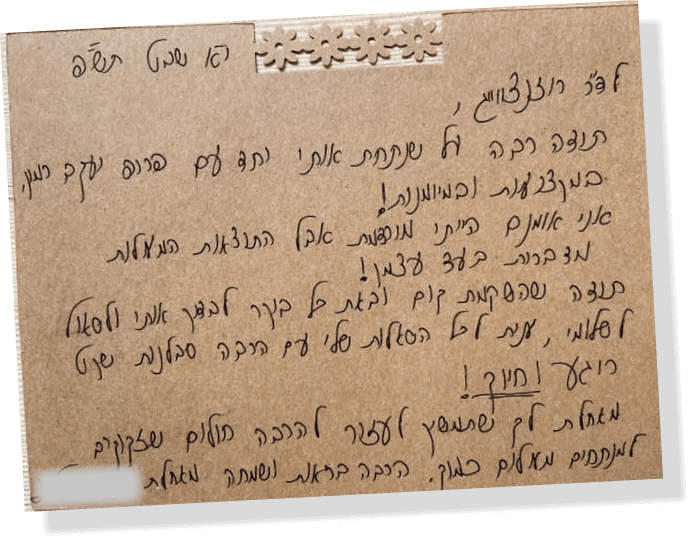 י"א שבט תש"פ
לד"ר רוזנצווייג,
תודה רבה על שניתחת אותי יחד עם פרופ יעקב רמון,
במקצועיות ובמיומנות!
אני אומנם הייתי מורדמת אבל התוצאות המעולות
מדברות בעד עצמן!
תודה שהשקמת קום ובאת כל בוקר לבדוק אותי ולשאול
לשלומי, ענית לכל השאלות שלי עם הרבה סבלנות שקט
רוגע וחיוך!
מאחלת לך שתמשיך לעזור להרבה חולים שזקוקים
למנתחים מעולים כמוך. הרבה בריאות ושמחה מאחלת